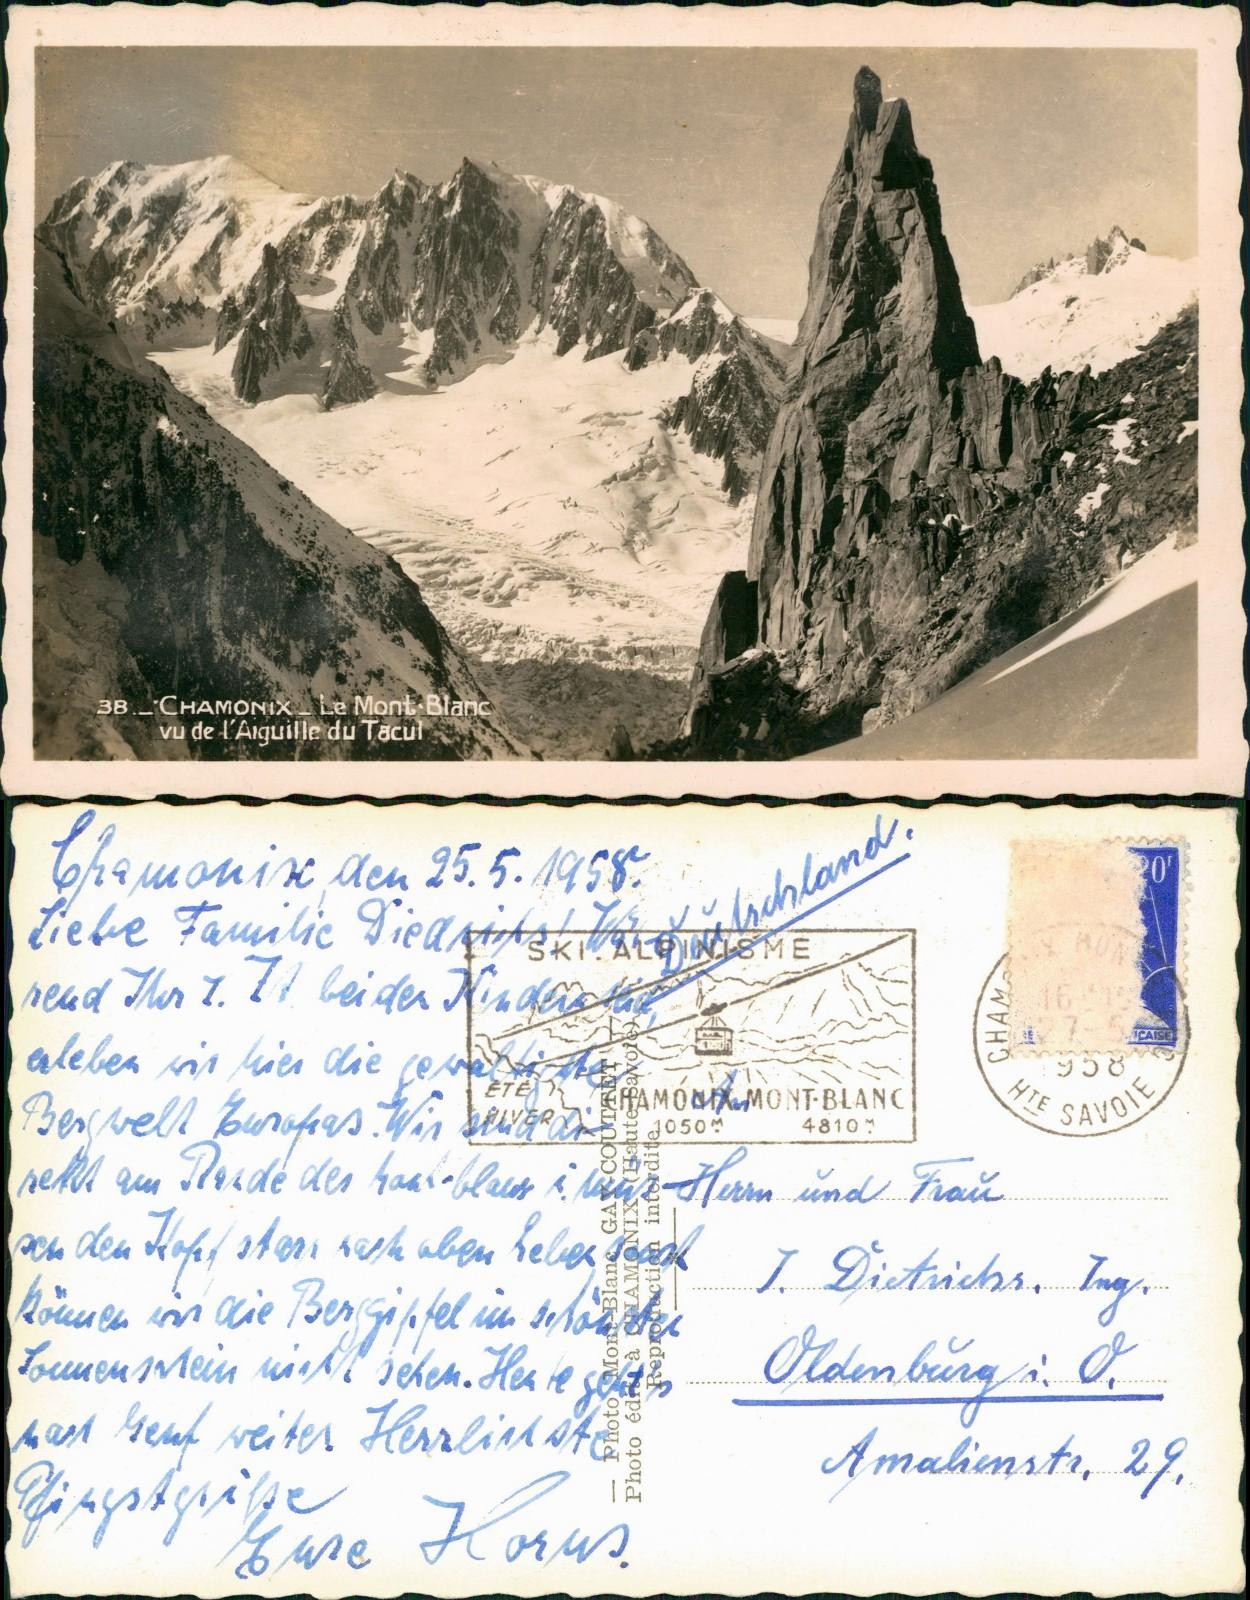 38._CHAMONIX_Le Mont-Blanc
vu de l'Aiguille du Tacul
Chamonix, den 25.5.1958.
Liebe Familie Died
rend Ihr z. Zt. bei den Kindern
erleben wir hier die gewaltigste
Bergwelt Europas. Wir sind di-
rekt am Rande des i. müs-
sen den Kopf starr nach oben heben sonst
können wir die Berggipfel im schönsten
Sonnenschein nicht sehen. Heute geht's
nach Genf weiter Herzlichste
Pfingstgrüße
Eure
Deutschland.
SKI. ALPINISME
ÉTÉ
HIVER
CHAMONIX MONT-BLANC
1050m 4810m
20f
CHAM
958
HTE SAVOIE
— Photo Mont-Blanc GAY-COUTTET —
Photo éditée à CHAMONIX (Haute-Savoie)
Reproduction interdite
Herrn und Frau
I. Dietrichs. Ing.
Oldenburg i. O.
Amalienstr. 29.